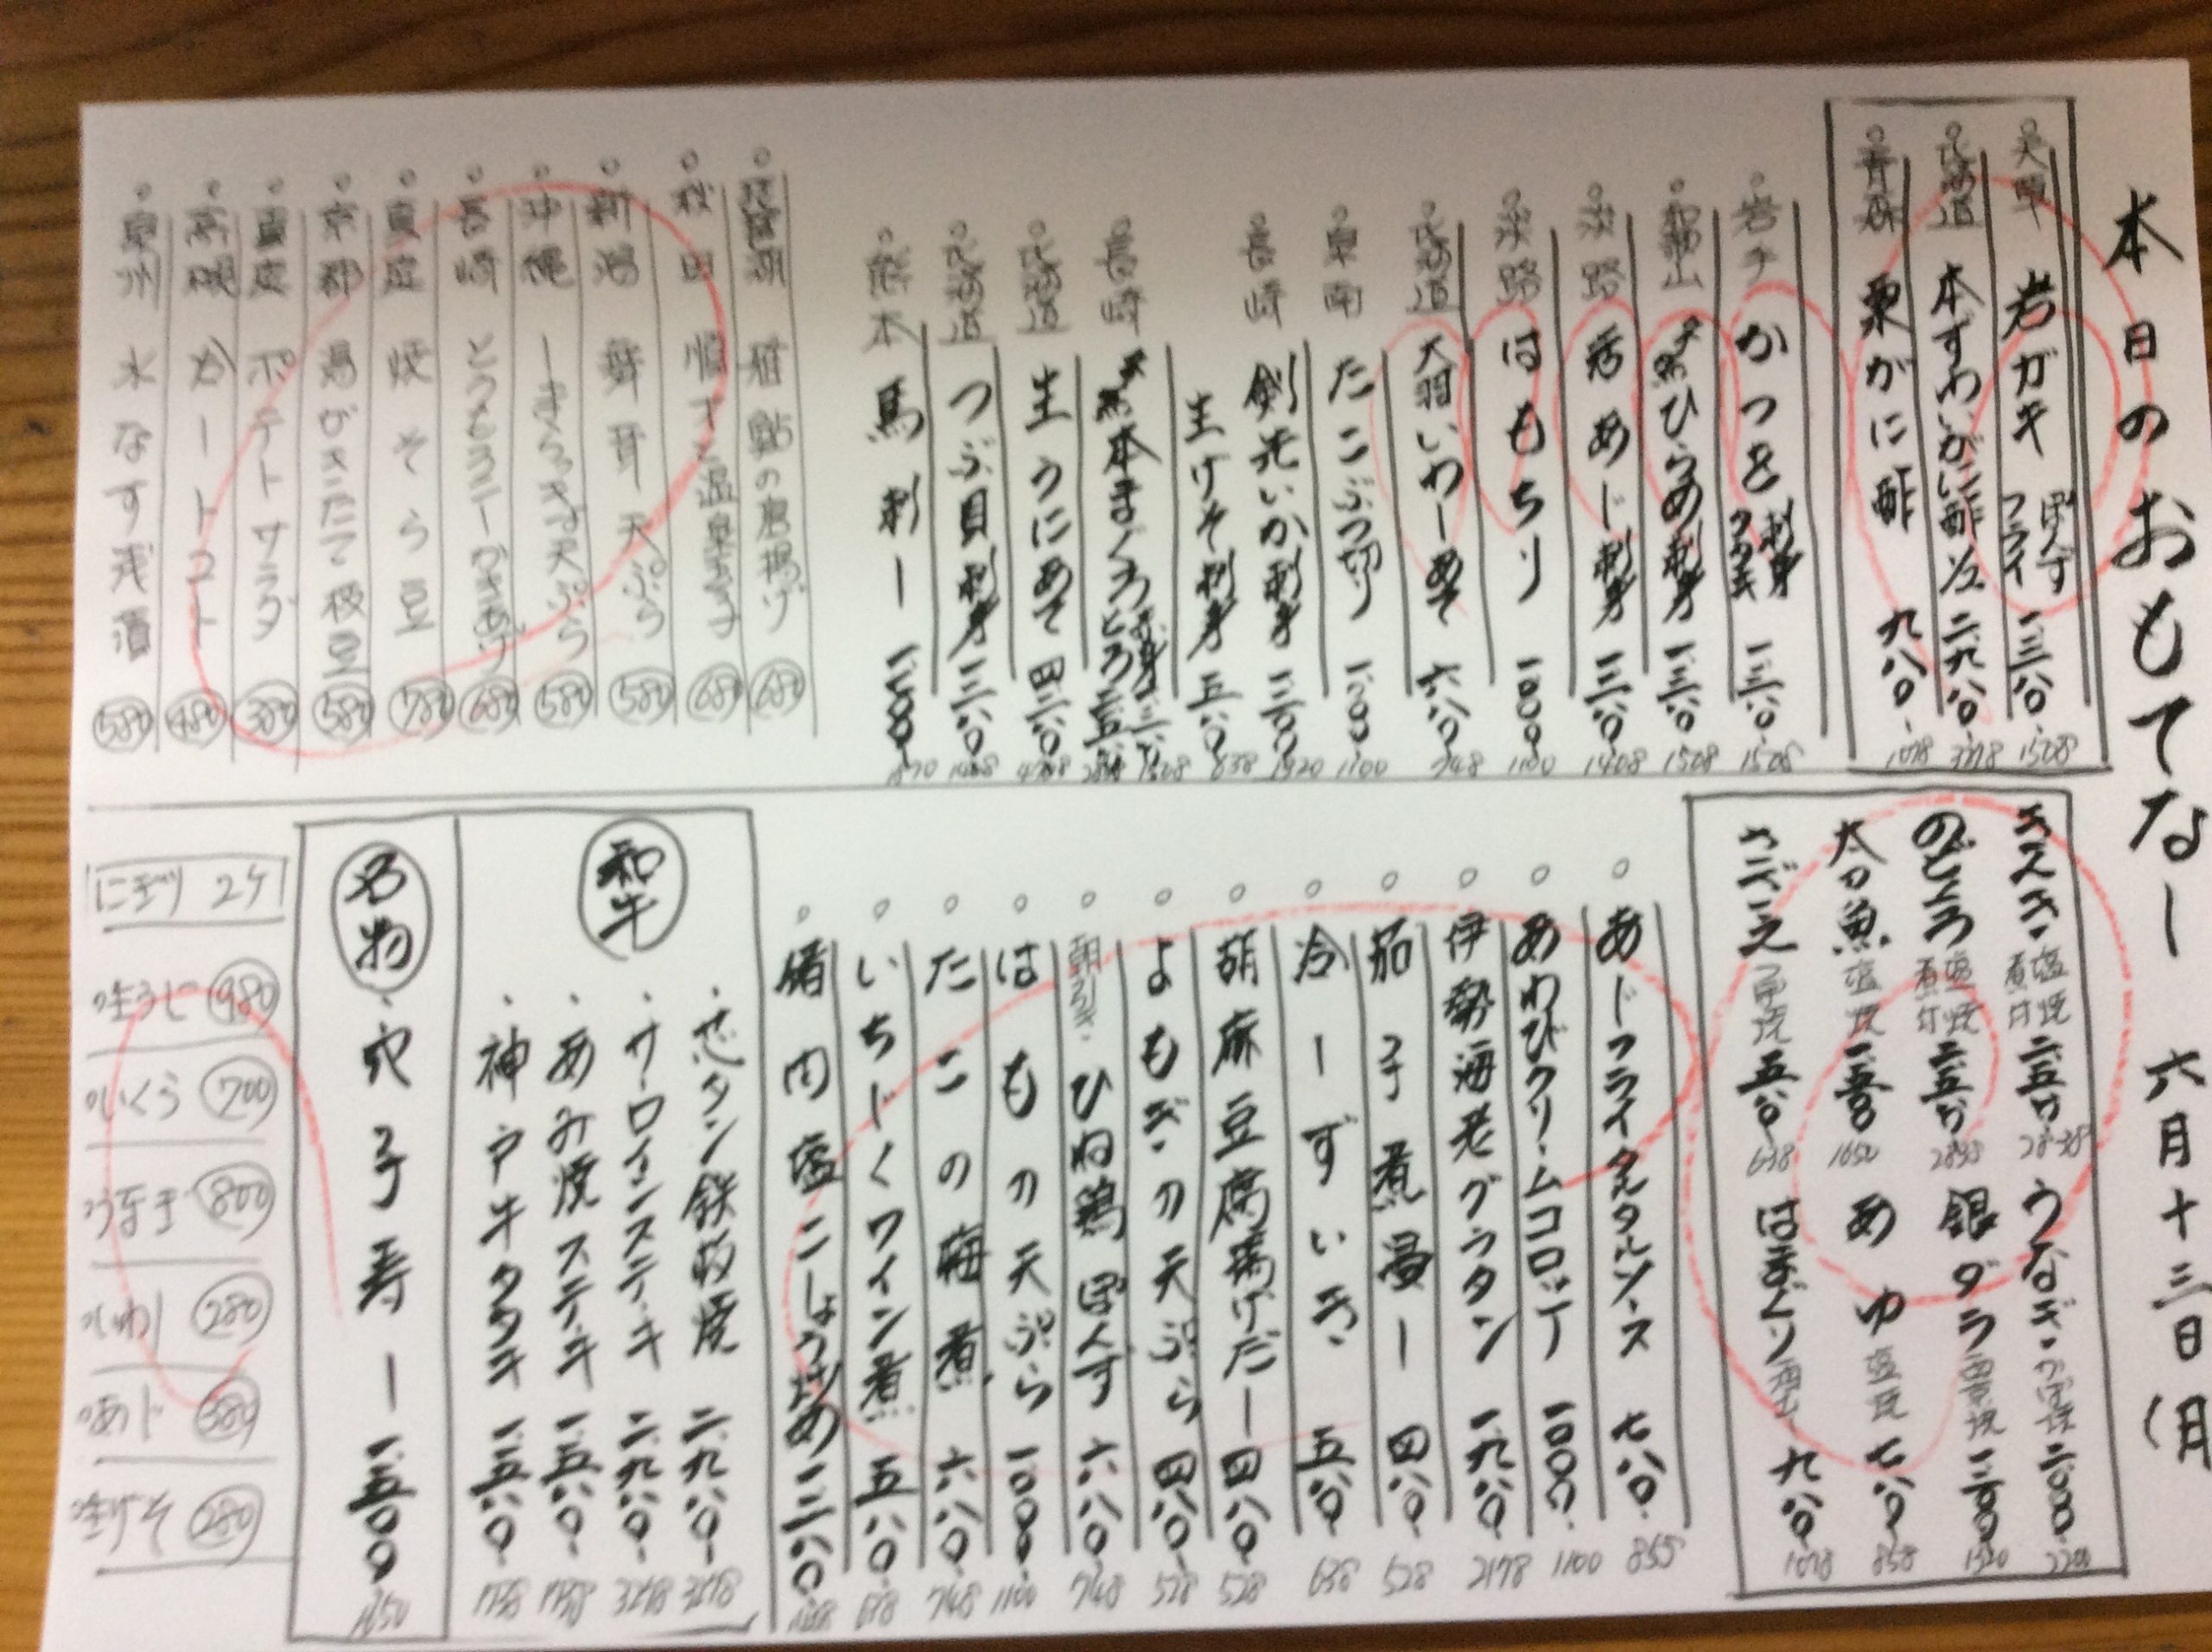 本日のおもてなし 六月十三日(月
天草 岩ガキ ぽんず フライ 一三八〇 1508
北海道 本ずわいがに酢 二九八〇
青森 栗がに酢 九八〇 1078
岩手 かつを 刺身 タタキ 一三八〇 1508
和歌山 天然ひらめ刺身 一三八〇 1508
淡路 活あじ刺身 一二八〇 1408
淡路 はもちり 一〇〇〇 1100
北海道 大羽いわし 六八〇 748
泉南 たこぶつ切り 一〇〇〇 1100
長崎 剣先いか刺身 一二〇〇 1320
生げそ刺身 五八〇 638
長崎 天然本まぐろ
北海道 生うに
北海道 つぶ貝刺身 一二八〇 1408
熊本 馬刺し
琵琶湖 稚鮎の唐揚げ 680
秋田 680
新潟 舞茸天ぷら 580
沖縄 天ぷら 580
長崎 とうもろこしかきあげ 680
鹿児島 焼そら豆 780
京都 湯がきたて枝豆 580
ポテトサラダ 380
高槻 トマト 480
泉州 水なす浅漬 580
塩焼 煮付 二五八〇 2838
のどぐろ 塩焼 煮付 二五八〇 2838
太刀魚 塩焼 一五〇〇 1650
五八〇 638
うなぎ かば焼 二〇〇〇 2200
銀ダラ 西京焼 一二〇〇 1320
あゆ 塩焼 七八〇 858
はまぐり 酒蒸し 九八〇 1078
あじフライタルタルソース 七八〇 858
あわびクリームコロッケ 一〇〇〇 1100
伊勢海老グラタン 一九八〇 2178
茄子煮浸し 四八〇 528
冷しずいき 五八〇 638
胡麻豆腐揚げだし 四八〇 528
よもぎの天ぷら 四八〇 528
朝引き ひね鶏ぽんず 六八〇 748
はもの天ぷら 一〇〇〇 1100
たこの梅煮 六八〇 748
いちじくワイン煮 五八〇 638
猪肉塩こしょう炒め
和牛
芯タン鉄板焼 二九八〇 3278
サーロインステーキ 二九八〇 3278
あみ焼ステーキ 一五八〇 1738
神戸牛タタキ 一五八〇 1738
名物
穴子寿し 一五〇〇 1650
にぎり 2ケ
生うに 980
いくら 700
うなぎ 800
いわし 280
あじ 380
生げそ 280